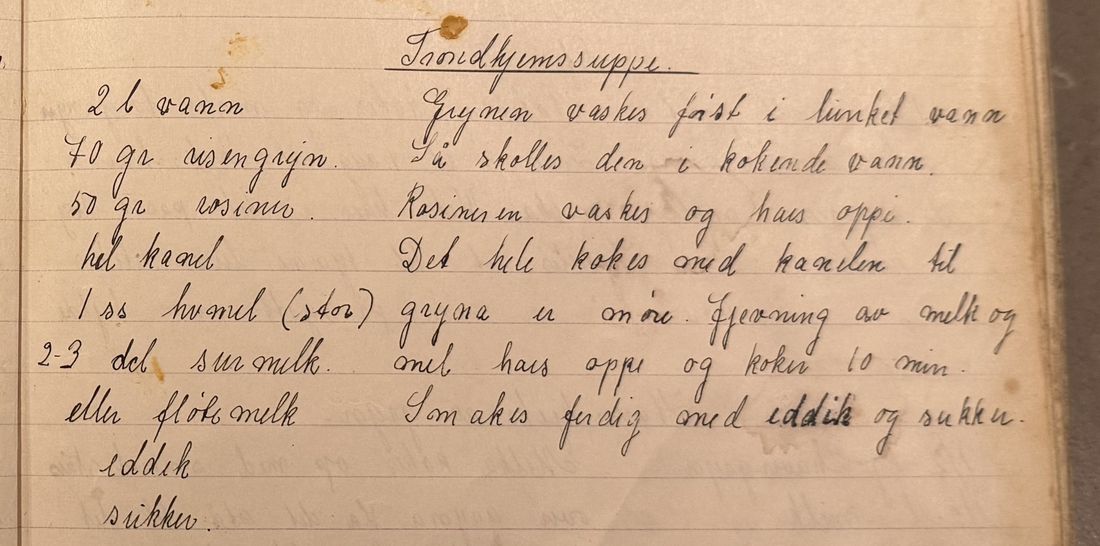 Trondhjemssuppe.
2 l vann
70 gr risengryn.
50 gr rosiner.
hel kanel
1 ss hvmel (stor)
2-3 del surmelk.
eller fløtemelk
eddik
sukker.
Grynen vaskes først i lunket vann
Så skolles den i kokende vann.
Rosinenen vaskes og haes oppi.
Det hele kokes med kanelen til
gryna er møre. Jjevning av melk og
mel haes oppi og koker 10 min.
Smakes ferdig med eddik og sukker.